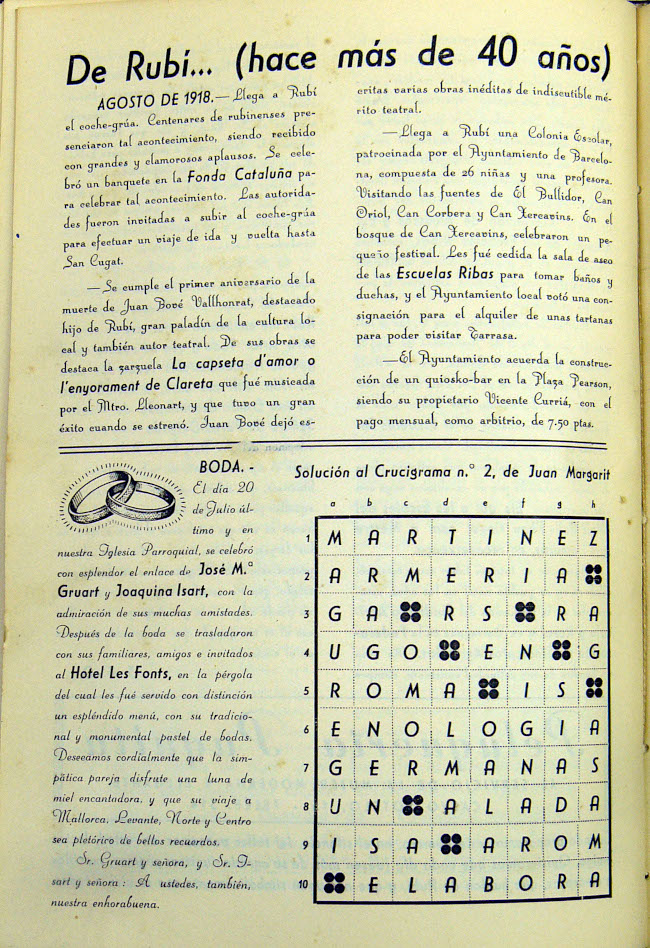 De Rubí... (hace más de 40 años)
AGOSTO DE 1918.—Llega a Rubí
el coche-grúa. Centenares de rubinenses pre-
senciaron tal acontecimiento, siendo recibido
con grandes y clamorosos aplausos. Se cele-
bró un banquete en la Fonda Cataluña pa-
ra celebrar tal acontecimiento. Las autorida-
des fueron invitadas a subir al coche-grúa
para efectuar un viaje de ida y vuelta hasta
San Cugat.
—Se cumple el primer aniversario de la
muerte de Juan Bové Vallhonrat, destacado
hijo de Rubí, gran paladín de la cultura lo-
cal y también autor teatral. De sus obras se
destaca la zarzuela La capseta d'amor o
l'enyorament de Clareta que fué musicada
por el Mtro. Lleonart, y que tuvo un gran
éxito cuando se estrenó. Juan Bové dejó es-
critas varias obras inéditas de indiscutible mé-
rito teatral.
—Llega a Rubí una Colonia Escolar,
patrocinada por el Ayuntamiento de Barcelo-
na, compuesta de 26 niñas y una profesora.
Visitando las fuentes de El Bullidor, Can
Oriol, Can Corbera y Can Xercavins. En el
bosque de Can Xercavins, celebraron un pe-
queño festival. Les fué cedida la sala de aseo
de las Escuelas Ribas para tomar baños y
duchas, y el Ayuntamiento local votó una con-
signación para el alquiler de unas tartanas
para poder visitar Tarrasa.
—El Ayuntamiento acuerda la construc-
ción de un quiosko-bar en la Plaza Pearson,
siendo su propietario Vicente Curriá, con el
pago mensual, como arbitrio, de 7.50 ptas.
BODA. -
El día 20
de Julio úl-
timo y en
nuestra Iglesia Parroquial, se celebró
con esplendor el enlace de José M.ª
Gruart y Joaquina Isart, con la
admiración de sus muchas amistades.
Después de la boda se trasladaron
con sus familiares, amigos e invitados
al Hotel Les Fonts, en la pérgola
del cual les fué servido con distinción
un espléndido menú, con su tradicio-
nal y monumental pastel de bodas.
Deseemos cordialmente que la sim-
pática pareja disfrute una luna de
miel encantadora, y que su viaje a
Mallorca, Levante, Norte y Centro
sea pletórico de bellos recuerdos.
Sr. Gruart y señora, y Sr. I-
sart y señora: A ustedes, también,
nuestra enhorabuena.
Solución al Crucigrama n.º 2, de Juan Margarit
a b c d e f g h
1 M A R T I N E Z
2 A R M E R I A
3 G A R S R A
4 U G O E N G
5 R O M A I S
6 E N O L O G I A
7 G E R M A N A S
8 U N A L A D A
9 I S A A R O M
10 E L A B O R A